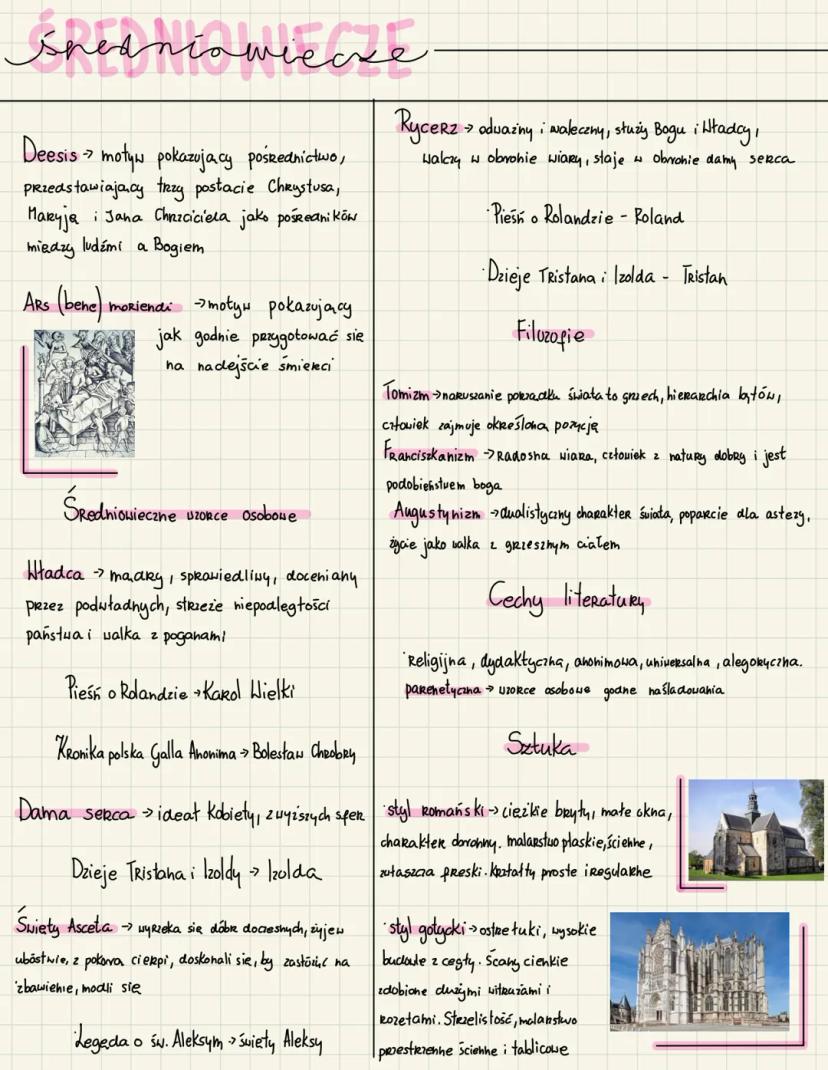 ŚREDNIOWIECZE
średniowiecze
Deesis → motyw pokazujący pośrednictwo,
przedstawiający trzy postacie Chrystusa,
Maryję i Jana Chrzciciela jako pośredników
między ludźmi a Bogiem
Ars (bene) moriendi → motyw pokazujący
jak godnie przygotować się
na nadejście śmierci
Średniowieczne wzorce osobowe
Władca → mądry, sprawiedliwy, doceniany
przez podwładnych, strzeże niepodległości
państwa i walka z poganami
Pieśń o Rolandzie → Karol Wielki
Kronika polska Galla Anonima → Bolesław Chrobry
Dama serca → ideał kobiety, z wyższych sfer
Dzieje Tristana i Izoldy → Izolda
Święty Asceta → wyrzeka się dóbr doczesnych, żyje w
ubóstwie, z pokorą cierpi, doskonali się, by zasłużyć na
zbawienie, modli się
·Legęda o św. Aleksym → święty Aleksy
Rycerz → odważny i waleczny, służy Bogu i Władcy,
walczy w obronie wiary, staje w obronie damy serca
·Pieśń o Rolandzie - Roland
·Dzieje Tristana i Izolda - Tristan
Filozofie
Tomizm → naruszanie porządku świata to grzech, hierarchia bytów,
człowiek zajmuje określoną pozycję
Franciszkanizm → Radosna wiara, człowiek z natury dobry i jest
podobieństwem boga
Augustynizm → dualistyczny charakter świata, poparcie dla astezy,
życie jako walka z grzesznym ciałem
Cechy literatury
·religijna, dydaktyczna, anonimowa, uniwersalna, alegoryczna.
parenetyczna → wzorce osobowe godne naśladowania
Sztuka
·styl romański → ciężkie bryły, małe okna,
charakter obronny. malarstwo płaskie, ścienne,
zwłaszcza freski. Kształty proste i regularne
·styl gotycki → ostre łuki, wysokie
budowle z cegły. Ściany cienkie
zdobione dużymi witrażami i
rozetami. Strzelistość, malarstwo
przestrzenne ścienne i tablicowe